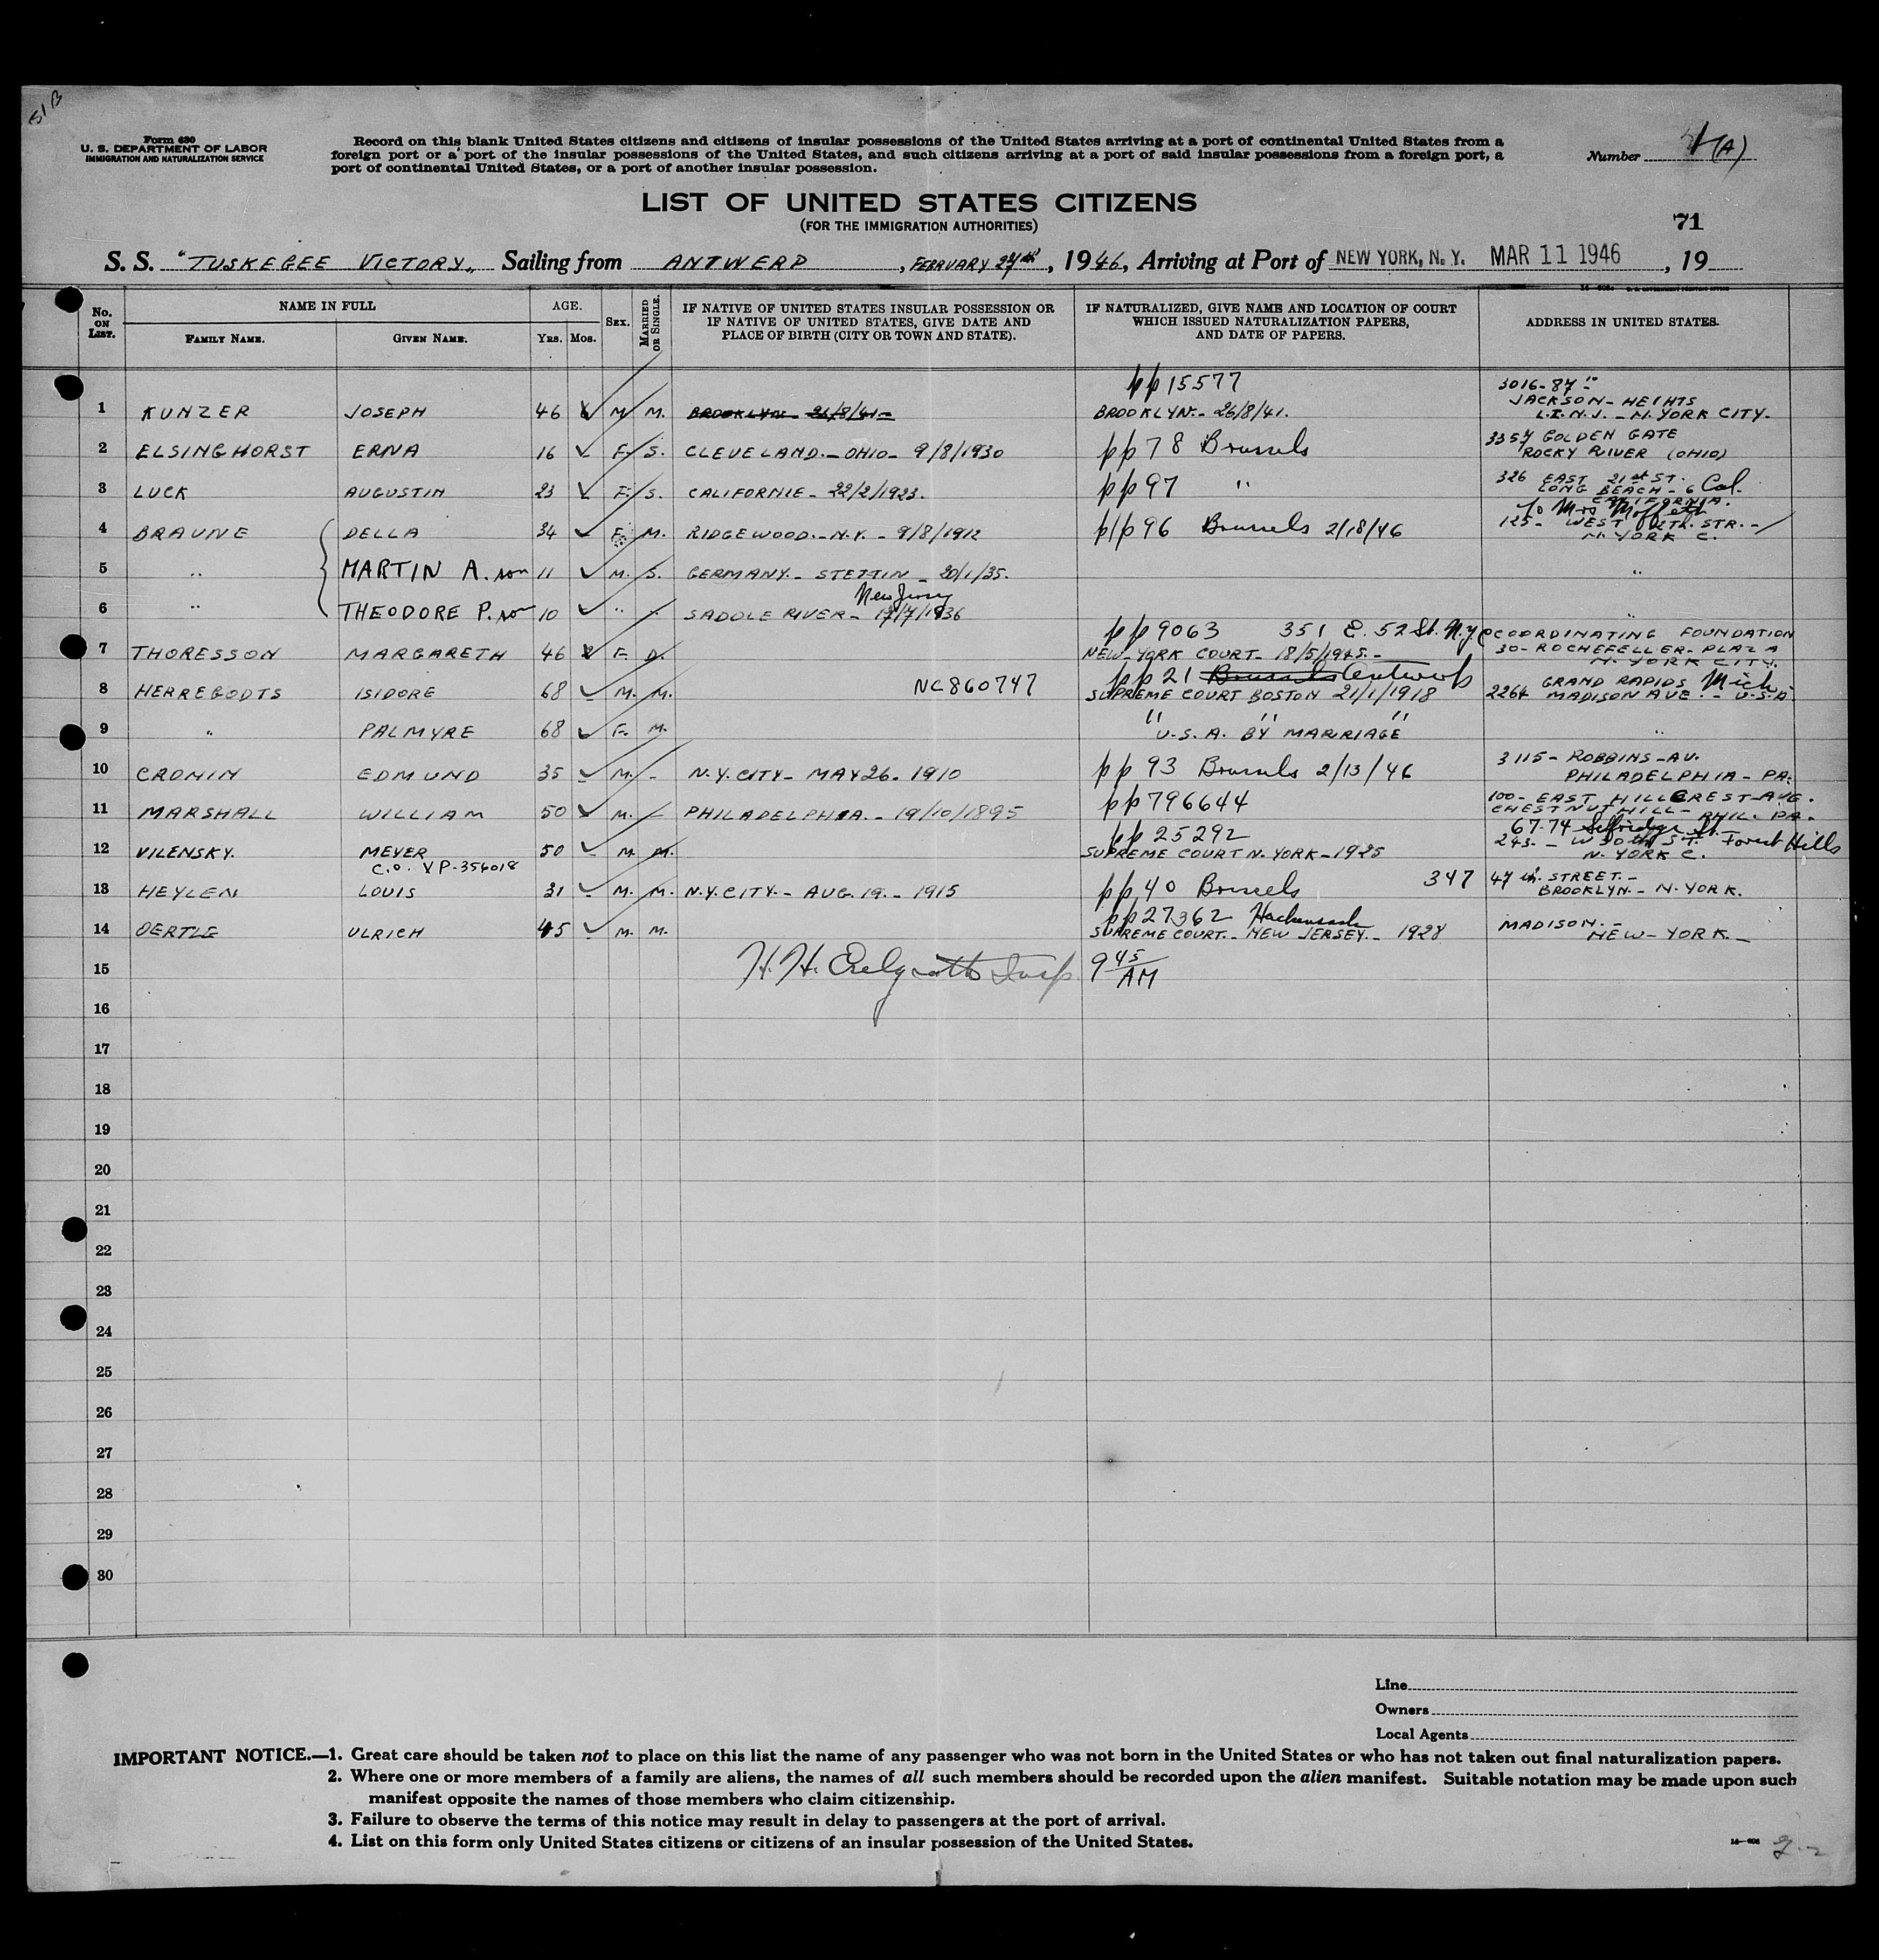 51 B
Form 630
U. S. DEPARTMENT OF LABOR
IMMIGRATION AND NATURALIZATION SERVICE
Record on this blank United States citizens and citizens of insular possessions of the United States arriving at a port of continental United States from a
foreign port or a port of the insular possessions of the United States, and such citizens arriving at a port of said insular possessions from a foreign port, a
port of continental United States, or a port of another insular possession.
Number (A)
LIST OF UNITED STATES CITIZENS
(FOR THE IMMIGRATION AUTHORITIES)
71
S. S. "TUSKEGEE VICTORY" Sailing from ANTWERP, FEBRUARY, 1946, Arriving at Port of NEW YORK, N. Y. MAR 11 1946, 19
No. ON LIST.
NAME IN FULL
FAMILY NAME. GIVEN NAME.
AGE.
YRS. MOS.
SEX.
MARRIED OR SINGLE.
IF NATIVE OF UNITED STATES INSULAR POSSESSION OR
IF NATIVE OF UNITED STATES, GIVE DATE AND
PLACE OF BIRTH (CITY OR TOWN AND STATE).
IF NATURALIZED, GIVE NAME AND LOCATION OF COURT
WHICH ISSUED NATURALIZATION PAPERS,
AND DATE OF PAPERS.
ADDRESS IN UNITED STATES.
pp 15577 3016-87
JACKSON-HEIGHTS
1 KUNZER JOSEPH 46 M M. BROOKLYN- 26/8/41- BROOKLYN.- 26/8/41. N. YORK CITY.
3357 GOLDEN GATE
2 ELSINGHORST ERNA 16 F. S. CLEVELAND.- OHIO- 9/8/1930 pp 78 Brussels ROCKY RIVER (OHIO)
326 EAST 21st ST.
3 LUCK AUGUSTIN 23 F. S. CALIFORNIE- 22/2/1923. pp 97 " LONG BEACH- 6 Cal.
CALIFORNIA.
To Mrs Moffett
4 BRAUNE DELLA 34 F. M. RIDGEWOOD.- N.Y.- 9/8/1912 pp 96 Brussels 2/18/46 125- WEST 12TH. STR.-
N. YORK C.
5 " MARTIN A. son 11 M. S. GERMANY.- STETTIN- 20/1/35. "
New Jersey
6 " THEODORE P. son 10 " " SADDLE RIVER- /7/1936
pp 9063 351 E. 52 St. N.y C COORDINATING FOUNDATION
7 THORESSON MARGARETH 46 F. D. NEW-YORK COURT- 18/5/1925.- 30- ROCHEFELLER-PLAZA
N. YORK CITY.
pp 21 Brussels Antwerp GRAND RAPIDS Mich.
8 HERREGODTS ISIDORE 68 M. M. NC860747 SUPREME COURT BOSTON 21/1/1918 2264 MADISON AVE.- U.S.A.
" " "
9 " PALMYRE 68 F. M. U.S.A. BY MARRIAGE "
3115- ROBBINS-AV.
10 CRONIN EDMUND 35 M. - N.Y. CITY- MAY 26. 1910 pp 93 Brussels 2/13/46 PHILADELPHIA- PA.
pp 796644 100- EAST HILLCREST-AVE.
11 MARSHALL WILLIAM 50 M. - PHILADELPHIA.- 19/10/1895 CHESTNUT HILL- PHIL. PA.
pp 25292 67-74 Selfridge St.
12 VILENSKY. MEYER 50 M. M. SUPREME COURT N. YORK-1925 243.- W 30th ST. Forest Hills
C.O. VP-354018 N. YORK C.
13 HEYLEN LOUIS 31 M. M. N.Y. CITY.- AUG. 19.- 1915 pp 40 Brussels 347 47 th. STREET.-
BROOKLYN.- N. YORK.
pp 27362 Hackensack
14 OERTLE ULRICH 45 M. M. SUPREME COURT.- NEW JERSEY.- 1928 MADISON.-
NEW-YORK.-
15 H. H. Insp. 9 45 AM
16
17
18
19
20
21
22
23
24
25
26
27
28
29
30
Line
Owners
Local Agents
IMPORTANT NOTICE.—1. Great care should be taken not to place on this list the name of any passenger who was not born in the United States or who has not taken out final naturalization papers.
2. Where one or more members of a family are aliens, the names of all such members should be recorded upon the alien manifest. Suitable notation may be made upon such
manifest opposite the names of those members who claim citizenship.
3. Failure to observe the terms of this notice may result in delay to passengers at the port of arrival.
4. List on this form only United States citizens or citizens of an insular possession of the United States.